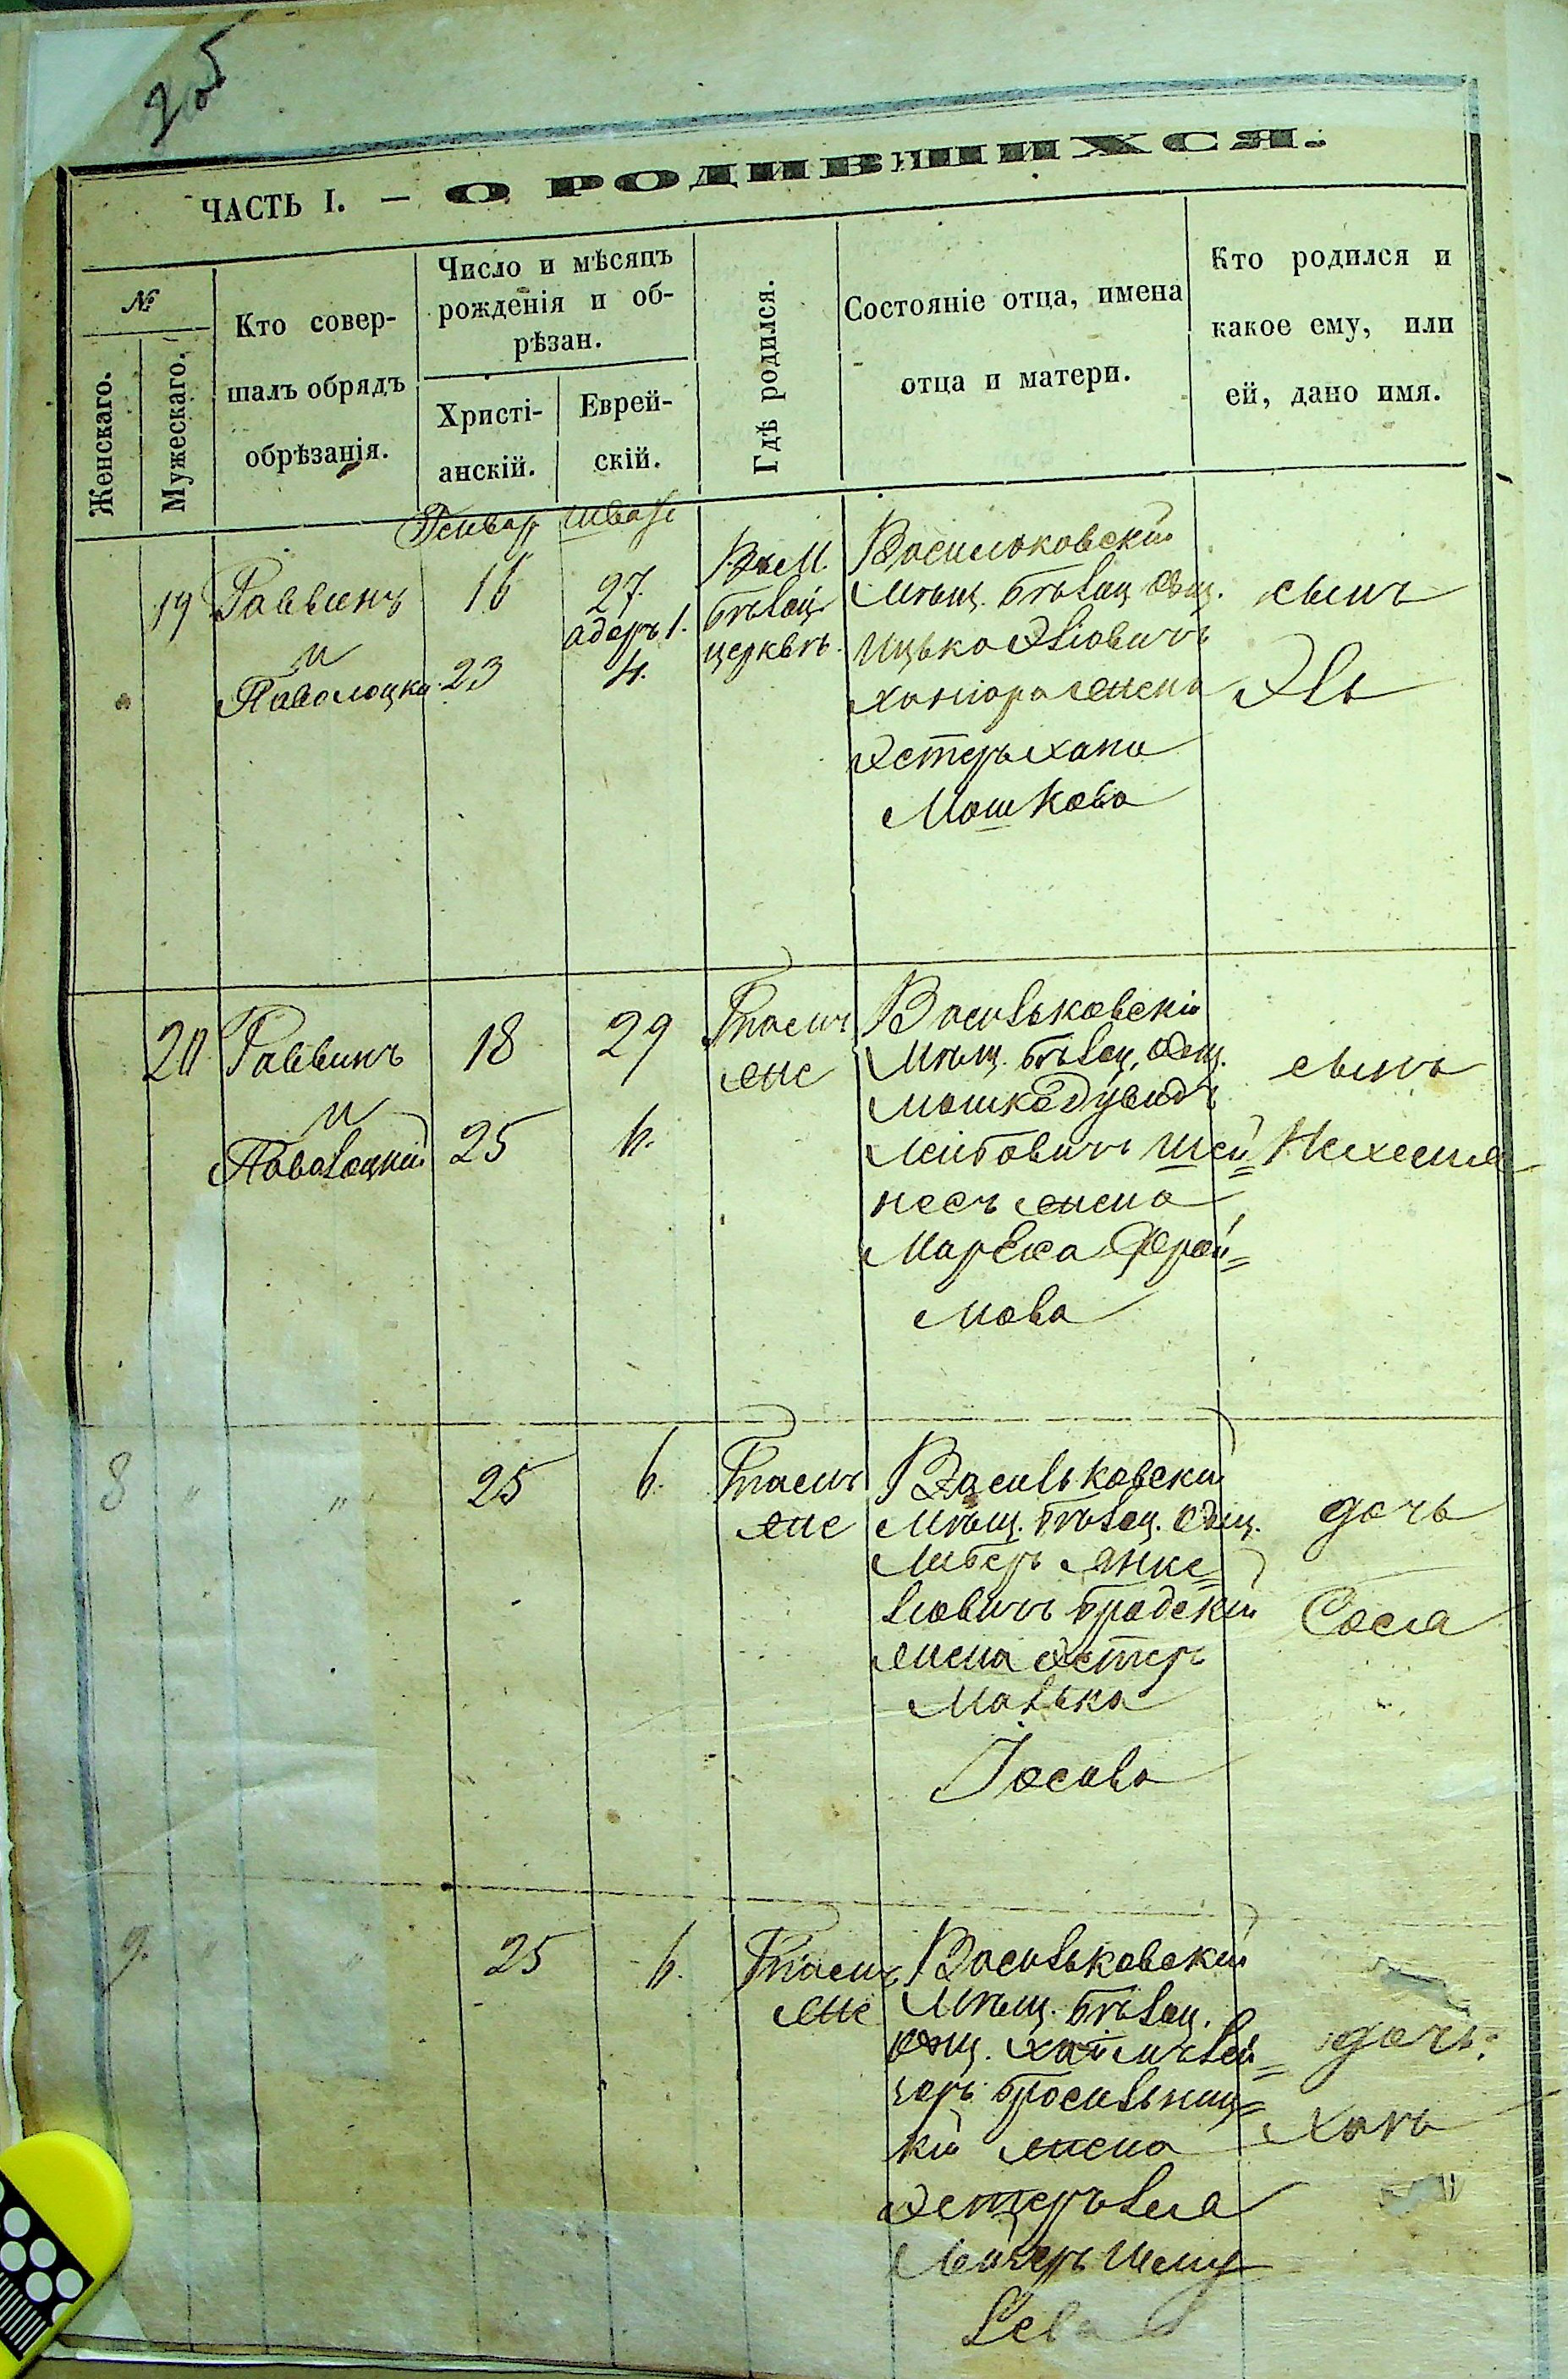 ЧАСТЬ I. — О РОДИВШИХСЯ.
№
Женскаго.
Мужескаго.
Кто совер-
шалъ обрядъ
обрѣзанія.
Число и мѣсяцъ
рожденія и об-
рѣзан.
Христі-
анскій.
Еврей-
скій.
Гдѣ родился.
Состояніе отца, имена
отца и матери.
Кто родился и
какое ему, или
ей, дано имя.
19
Раввинъ
и
Паволоцкій
Генвар
16
23
Шватъ
27.
адеръ 1.
4.
Въ М.
бѣлой
церквѣ.
Васильковскій
Мѣщ. бѣлоц. общ.
Ицько Эліовичъ
жена
Эстеръ хана
Мошкова
сынъ
Эль
20
Раввинъ
и
Паволоцкій
18
25
29
6.
Тасмъ
же
Васильковскій
Мѣщ. бѣлоц. общ.
Мошко Дувидъ
Лейбовичъ Шей=
несъ жена
Фрой=
мова
сынъ
Нехемія
8 " "
25
6.
Тамъ
же
Васильковскій
Мѣщ. бѣлоц. общ.
Либеръ Янке=
левичъ бродскій
жена Эстеръ
Малька
Іосева
дочь
Сося
9. " "
25
6.
Тамъ
же
Васильковскій
Мѣщ. бѣлоц.
общ. Хаимъ Лей=
зеръ
кій жена
Эстеръ Лея
Шму
лева
дочь.